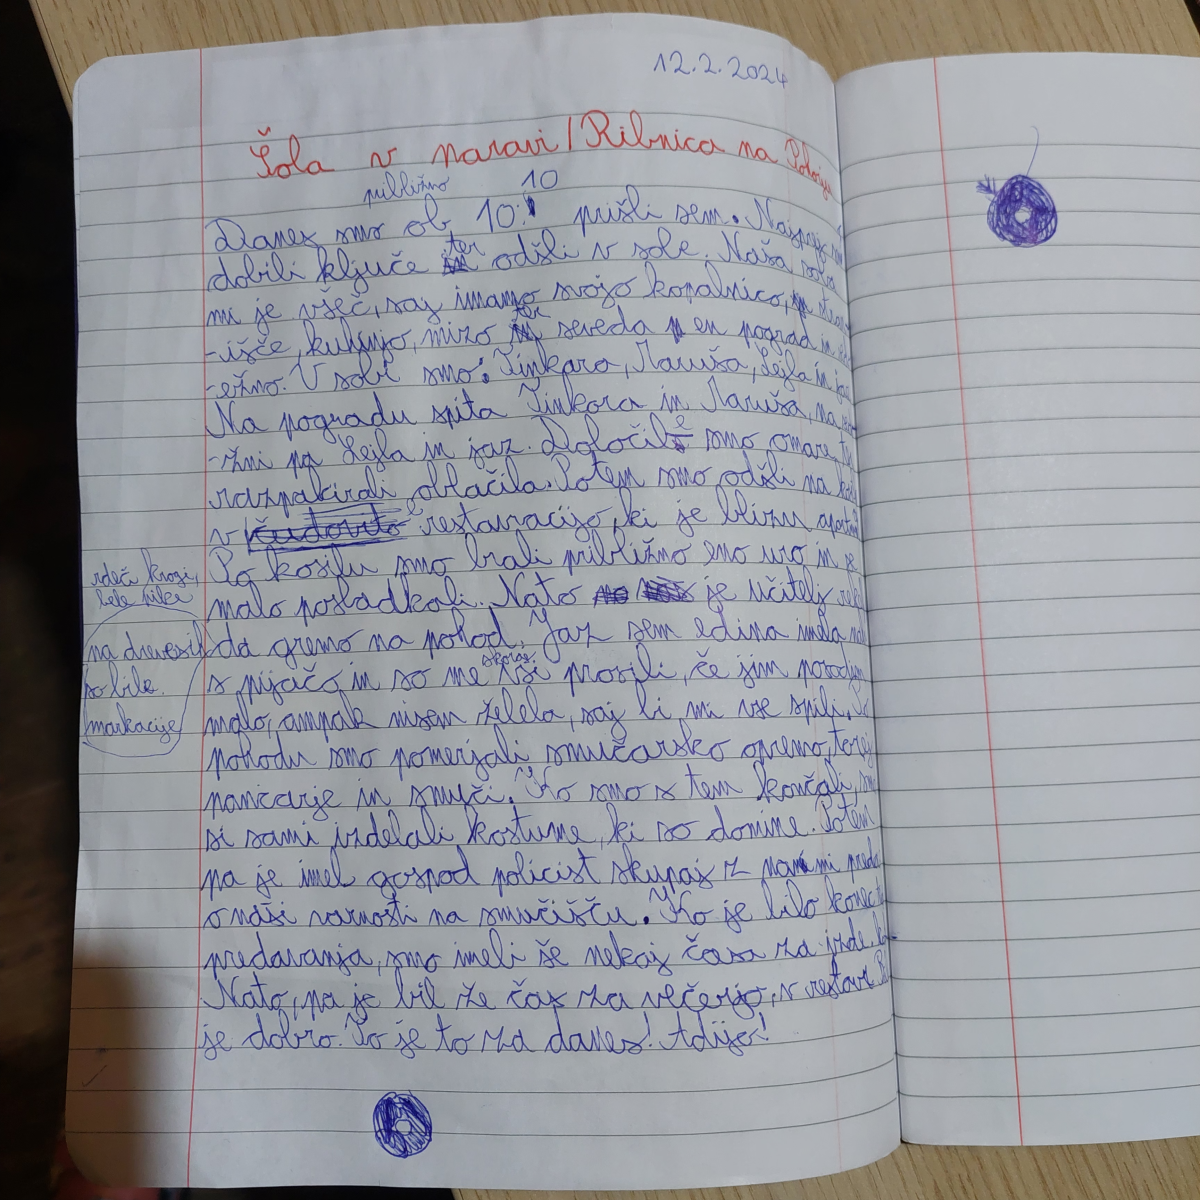 12.2.2024
Šola v naravi / Ribnica na Pohorju
približno 10
Danes smo ob 10: prišli sem. Najprej smo
dobili ključe ter odšli v sobe. Naša soba
mi je všeč, saj imamo svojo kopalnico, stran-
-išče, kuhinjo, mizo ter seveda en pograd in
-ežno. V sobi smo: Tinkara, Maruša, Lejla in jaz
Na pogradu spita Tinkara in Maruša, na
-žni pa Lejla in jaz. Določile smo omare ter
razpakirali oblačila. Potem smo odšli na kosilo
v restavracijo, ki je blizu
Po kosilu smo brali približno eno uro in se
malo posladkali. Nato je učitelj rekel
da gremo na pohod. Jaz sem edina imela
s pijačo in so me skoraj vsi prosili, če jim posodim
malo, ampak nisem želela, saj bi mi vse spili. Po
pohodu smo pomerjali smučarsko opremo, torej
pancarje in smuči. Ko smo s tem končali, smo
si sami izdelali kostume, ki so domine. Potem
pa je imel gospod policist skupaj z nami
o naši varnosti na smučišču. Ko je bilo konec
predavanja, smo imeli še nekaj časa za
Nato, pa je bil že čas za večerjo, v
je dobro. To je to za danes! Adijo!
rdeči krogi,
bele pike
na drevesih
so bile
markacije